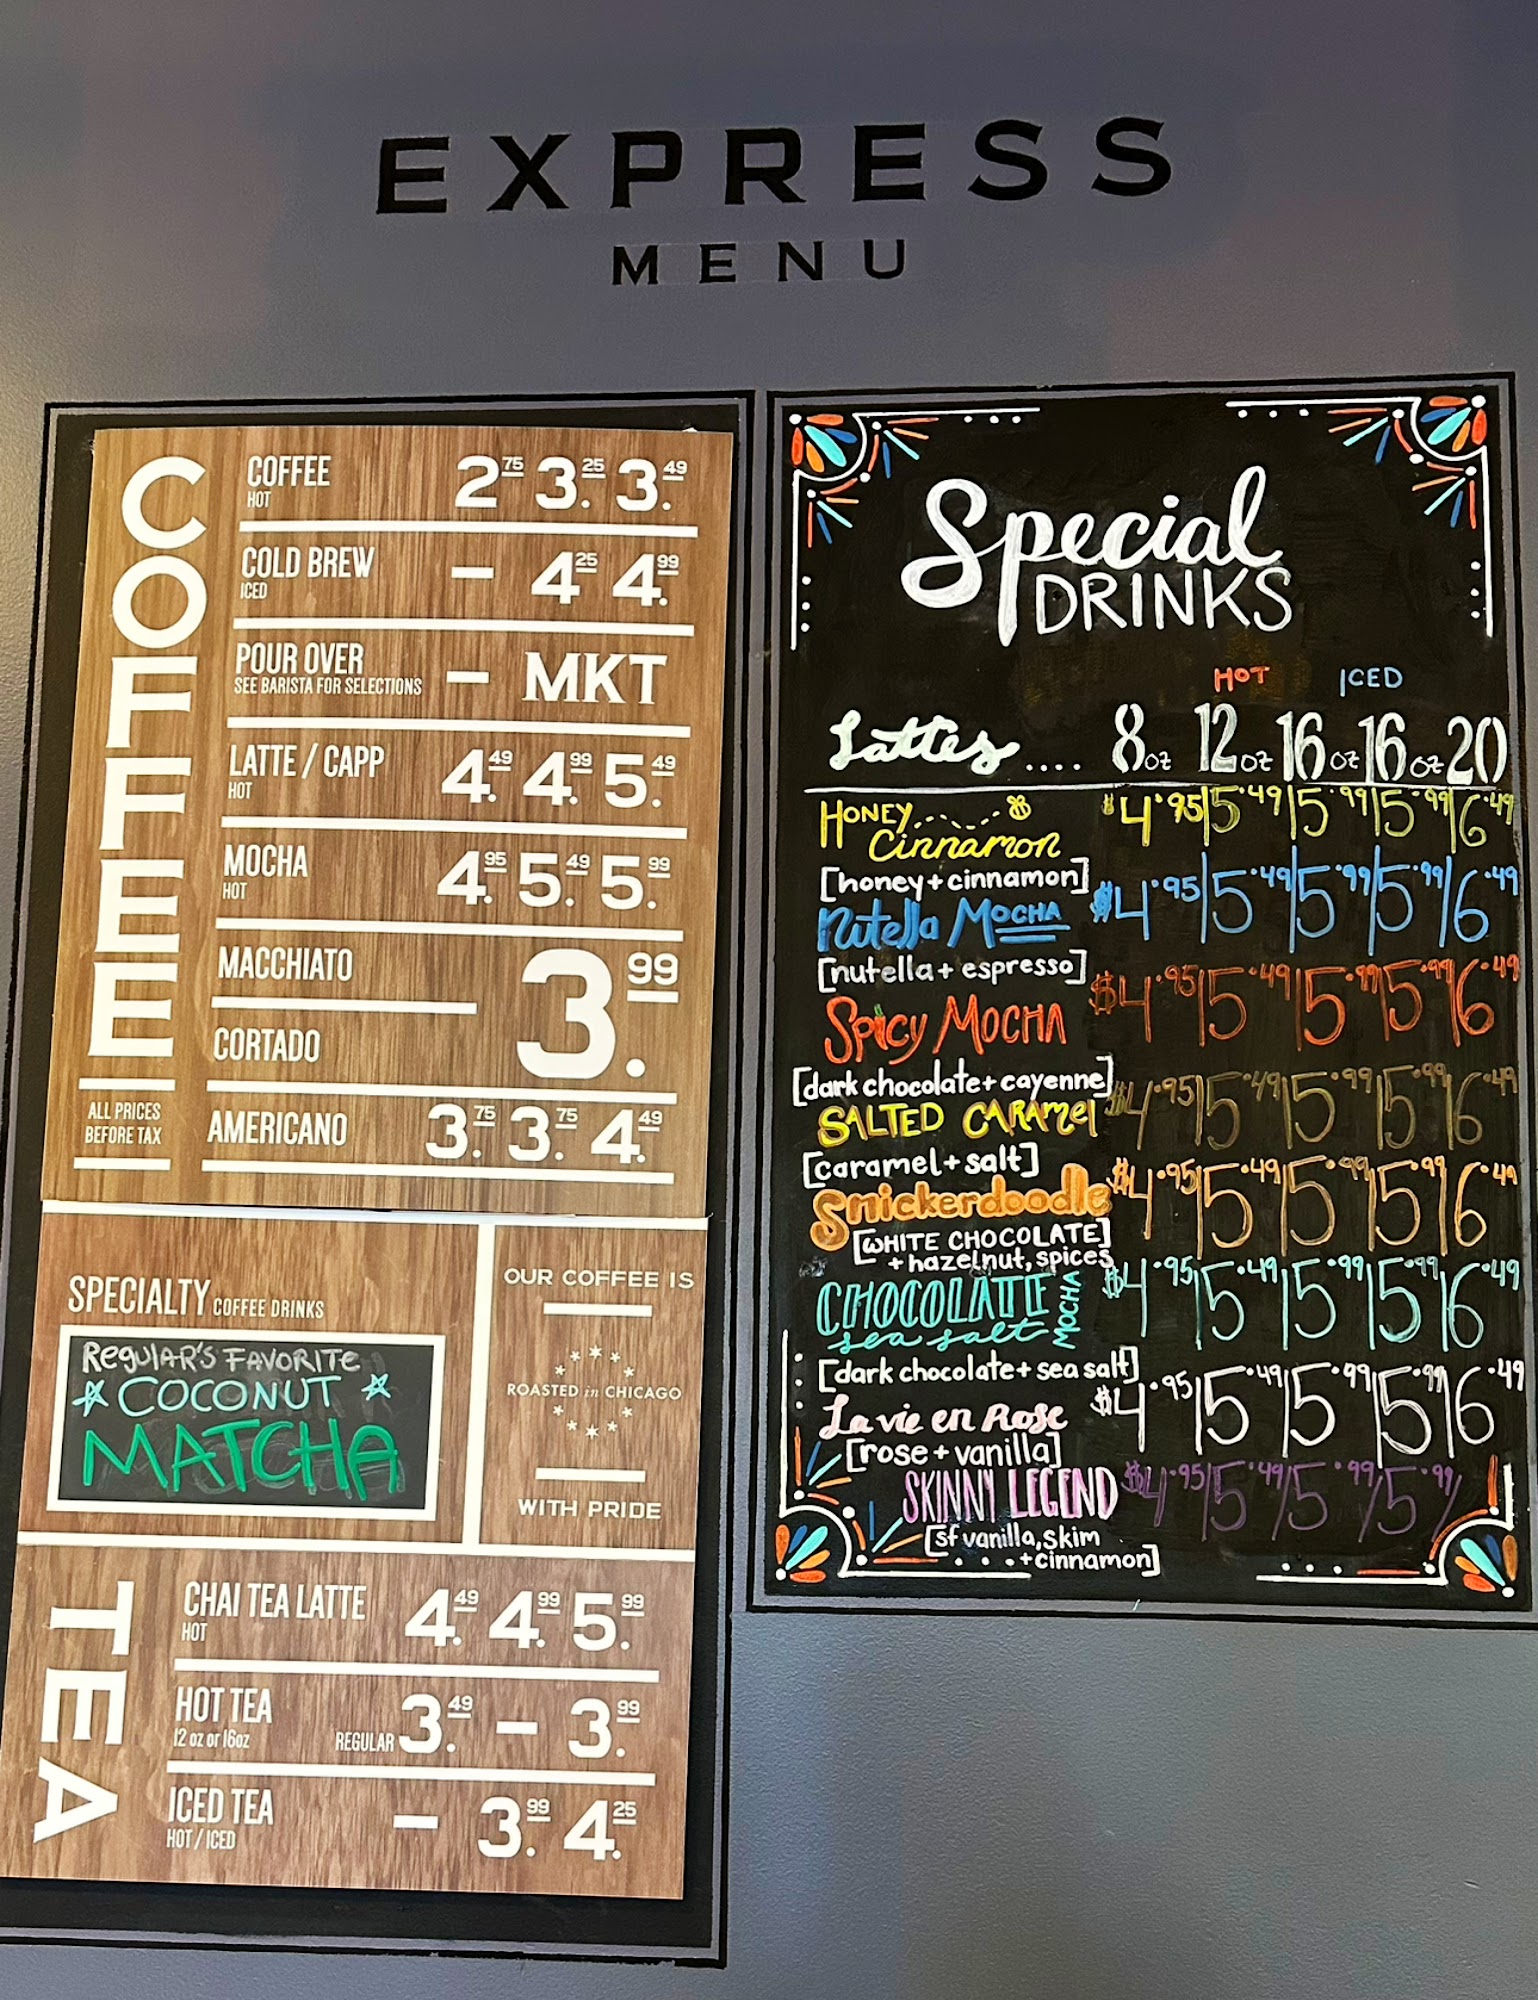 EXPRESS
MENU
COFFEE
COFFEE 2.75 3.25 3.49
HOT
COLD BREW – 4.25 4.99
ICED
POUR OVER – MKT
SEE BARISTA FOR SELECTIONS
LATTE / CAPP 4.49 4.99 5.49
HOT
MOCHA 4.95 5.49 5.99
HOT
MACCHIATO 3.99
CORTADO
AMERICANO 3.75 3.75 4.49
ALL PRICES
BEFORE TAX
SPECIALTY COFFEE DRINKS
REGULAR'S FAVORITE
COCONUT
MATCHA
OUR COFFEE IS
ROASTED in CHICAGO
WITH PRIDE
TEA
CHAI TEA LATTE 4.49 4.99 5.99
HOT
HOT TEA REGULAR 3.49 – 3.99
12 oz or 16oz
ICED TEA – 3.99 4.25
HOT / ICED
Special
DRINKS
HOT ICED
Lattes.... 8oz 12oz 16oz 16oz 20
HONEY Cinnamon $4.95|5.49|5.99|5.99|6.49
[honey+cinnamon]
Nutella MOCHA $4.95|5.49|5.99|5.99|6.49
[nutella+espresso]
Spicy MOCHA $4.95|5.49|5.99|5.99|6.49
[dark chocolate+cayenne]
SALTED CARAMel $4.95|5.49|5.99|5.99|6.49
[caramel+salt]
Snickerdoodle $4.95|5.49|5.99|5.99|6.49
[WHITE CHOCOLATE]
+hazelnut, spices
CHOCOLATE sea salt MOCHA $4.95|5.49|5.99|5.99|6.49
[dark chocolate+sea salt]
La vie en Rose $4.95|5.49|5.99|5.99|6.49
[rose+vanilla]
SKINNY LEGEND $4.95|5.49|5.99|5.99|
[sf vanilla, skim
+cinnamon]